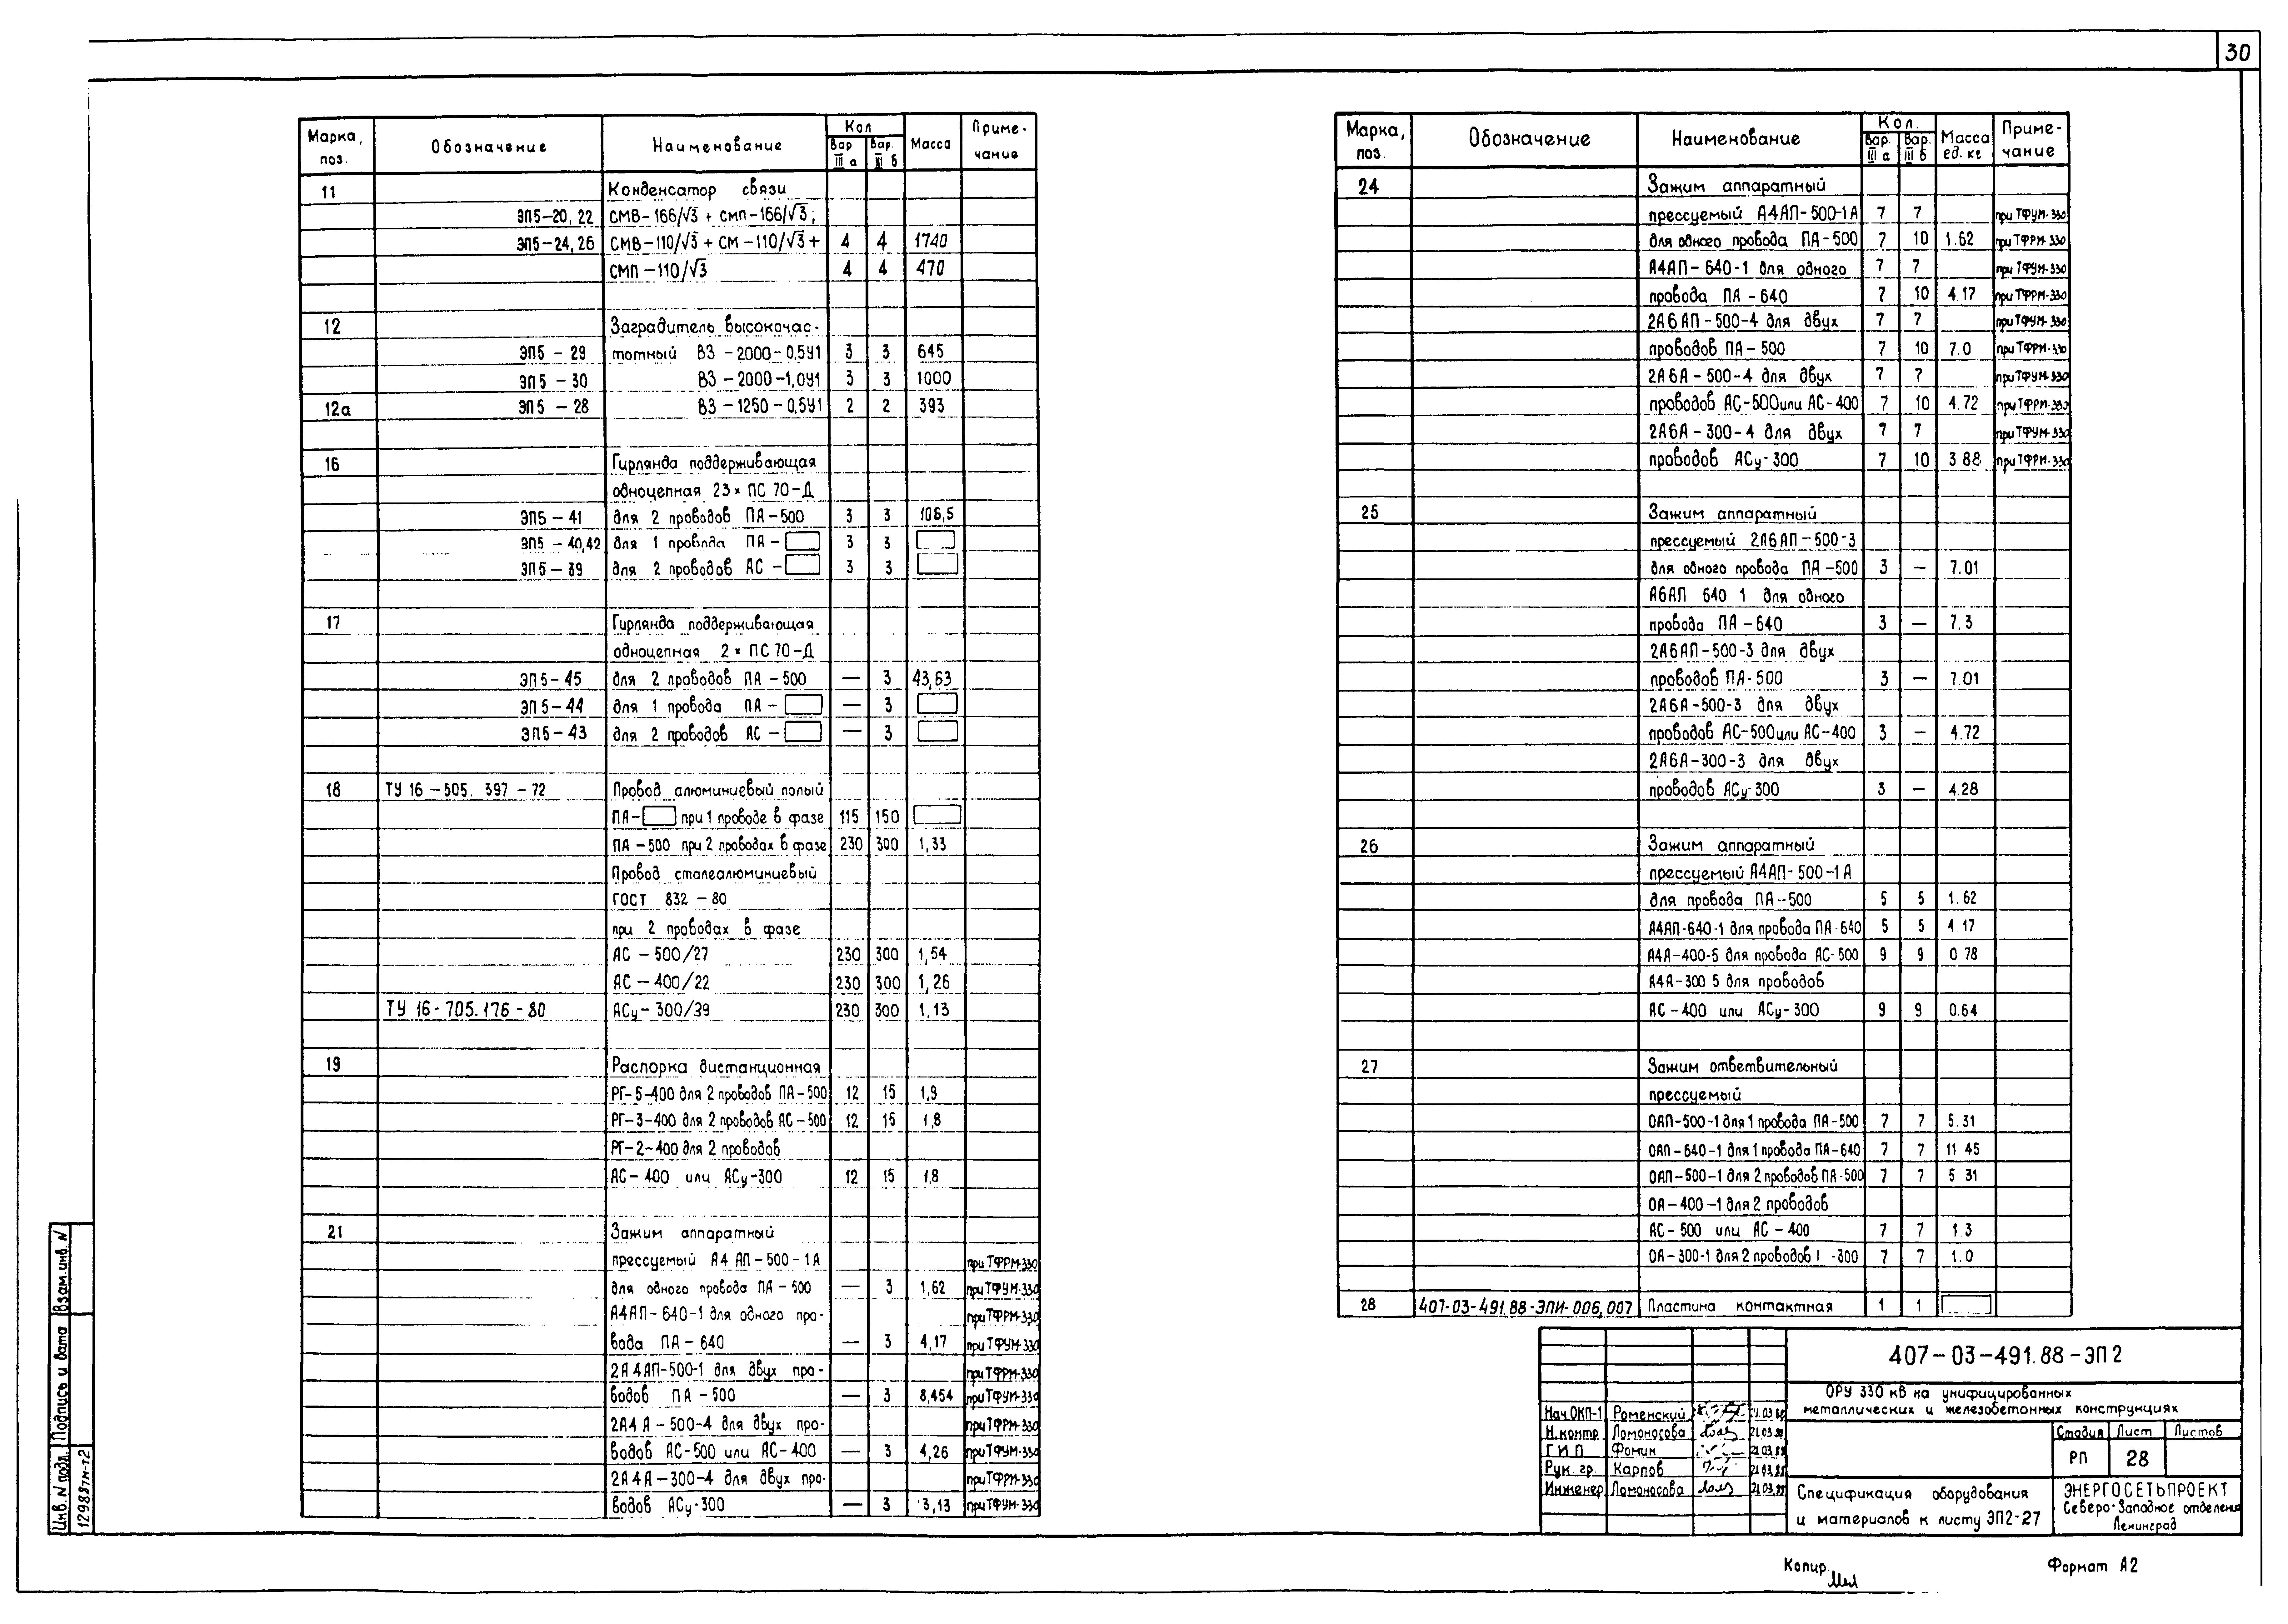 30
Марка, поз. Обозначение Наименование Кол Вар III а Вар. III б Масса Примечание
11 Конденсатор связи
ЭП5-20, 22 СМВ-166/√3 + СМП-166/√3;
ЭП5-24, 26 СМВ-110/√3 + СМ-110/√3+ 4 4 1740
СМП-110/√3 4 4 470
12 Заградитель высокочас-
ЭП5-29 тотный ВЗ-2000-0,5У1 3 3 645
ЭП5-30 ВЗ-2000-1,0У1 3 3 1000
12а ЭП5-28 ВЗ-1250-0,5У1 2 2 393
16 Гирлянда поддерживающая
одноцепная 23×ПС 70-Д
ЭП5-41 для 2 проводов ПА-500 3 3 106,5
ЭП5-40,42 для 1 провода ПА- 3 3
ЭП5-39 для 2 проводов АС- 3 3
17 Гирлянда поддерживающая
одноцепная 2×ПС 70-Д
ЭП5-45 для 2 проводов ПА-500 — 3 43,63
ЭП5-44 для 1 провода ПА- — 3
ЭП5-43 для 2 проводов АС- — 3
18 ТУ 16-505.397-72 Провод алюминиевый полый
ПА- при 1 проводе в фазе 115 150
ПА-500 при 2 проводах в фазе 230 300 1,33
Провод сталеалюминиевый
ГОСТ 832-80
при 2 проводах в фазе
АС-500/27 230 300 1,54
АС-400/22 230 300 1,26
ТУ 16-705.176-80 АСу-300/39 230 300 1,13
19 Распорка дистанционная
РГ-5-400 для 2 проводов ПА-500 12 15 1,9
РГ-3-400 для 2 проводов АС-500 12 15 1,8
РГ-2-400 для 2 проводов
АС-400 или АСу-300 12 15 1,8
21 Зажим аппаратный
прессуемый А4АП-500-1А при ТФРМ-330
для одного провода ПА-500 — 3 1,62 при ТФУМ-330
А4АП-640-1 для одного про- при ТФРМ-330
вода ПА-640 — 3 4,17 при ТФУМ-330
2А4АП-500-1 для двух про- при ТФРМ-330
водов ПА-500 — 3 8,454 при ТФУМ-330
2А4А-500-4 для двух про- при ТФРМ-330
водов АС-500 или АС-400 — 3 4,26 при ТФУМ-330
2А4А-300-4 для двух про- при ТФРМ-330
водов АСу-300 — 3 3,13 при ТФУМ-330
Марка, поз. Обозначение Наименование Кол. Вар. III а Вар. III б Масса ед. кг Примечание
24 Зажим аппаратный
прессуемый А4АП-500-1А 7 7 при ТФУМ-330
для одного провода ПА-500 7 10 1.62 при ТФРМ-330
А4АП-640-1 для одного 7 7 при ТФУМ-330
провода ПА-640 7 10 4.17 при ТФРМ-330
2А6АП-500-4 для двух 7 7 при ТФУМ-330
проводов ПА-500 7 10 7.0 при ТФРМ-330
2А6А-500-4 для двух 7 7 при ТФУМ-330
проводов АС-500 или АС-400 7 10 4.72 при ТФРМ-330
2А6А-300-4 для двух 7 7 при ТФУМ-330
проводов АСу-300 7 10 3.88 при ТФРМ-330
25 Зажим аппаратный
прессуемый 2А6АП-500-3
для одного провода ПА-500 3 — 7.01
А6АП 640 1 для одного
провода ПА-640 3 — 7.3
2А6АП-500-3 для двух
проводов ПА-500 3 — 7.01
2А6А-500-3 для двух
проводов АС-500 или АС-400 3 — 4.72
2А6А-300-3 для двух
проводов АСу-300 3 — 4.28
26 Зажим аппаратный
прессуемый А4АП-500-1А
для провода ПА-500 5 5 1.62
А4АП-640-1 для провода ПА-640 5 5 4.17
А4А-400-5 для провода АС-500 9 9 0 78
А4А-300 5 для проводов
АС-400 или АСу-300 9 9 0.64
27 Зажим ответвительный
прессуемый
ОАП-500-1 для 1 провода ПА-500 7 7 5.31
ОАП-640-1 для 1 провода ПА-640 7 7 11 45
ОАП-500-1 для 2 проводов ПА-500 7 7 5 31
ОА-400-1 для 2 проводов
АС-500 или АС-400 7 7 1.3
ОА-300-1 для 2 проводов -300 7 7 1.0
28 407-03-491.88-ЭПИ-006,007 Пластина контактная 1 1
407-03-491.88-ЭП2
ОРУ 330 кВ на унифицированных
металлических и железобетонных конструкциях
Нач ОКП-1 Роменский
Н.контр Ломоносова
ГИП Фомин
Рук. гр Карпов
Инженер Ломоносова
Стадия Лист Листов
РП 28
Спецификация оборудования
и материалов к листу ЭП2-27
ЭНЕРГОСЕТЬПРОЕКТ
Северо-Западное отделение
Ленинград
Копир. Формат А2
Инв. N подл. Подпись и дата Взам. инв. N
12988тм-т2